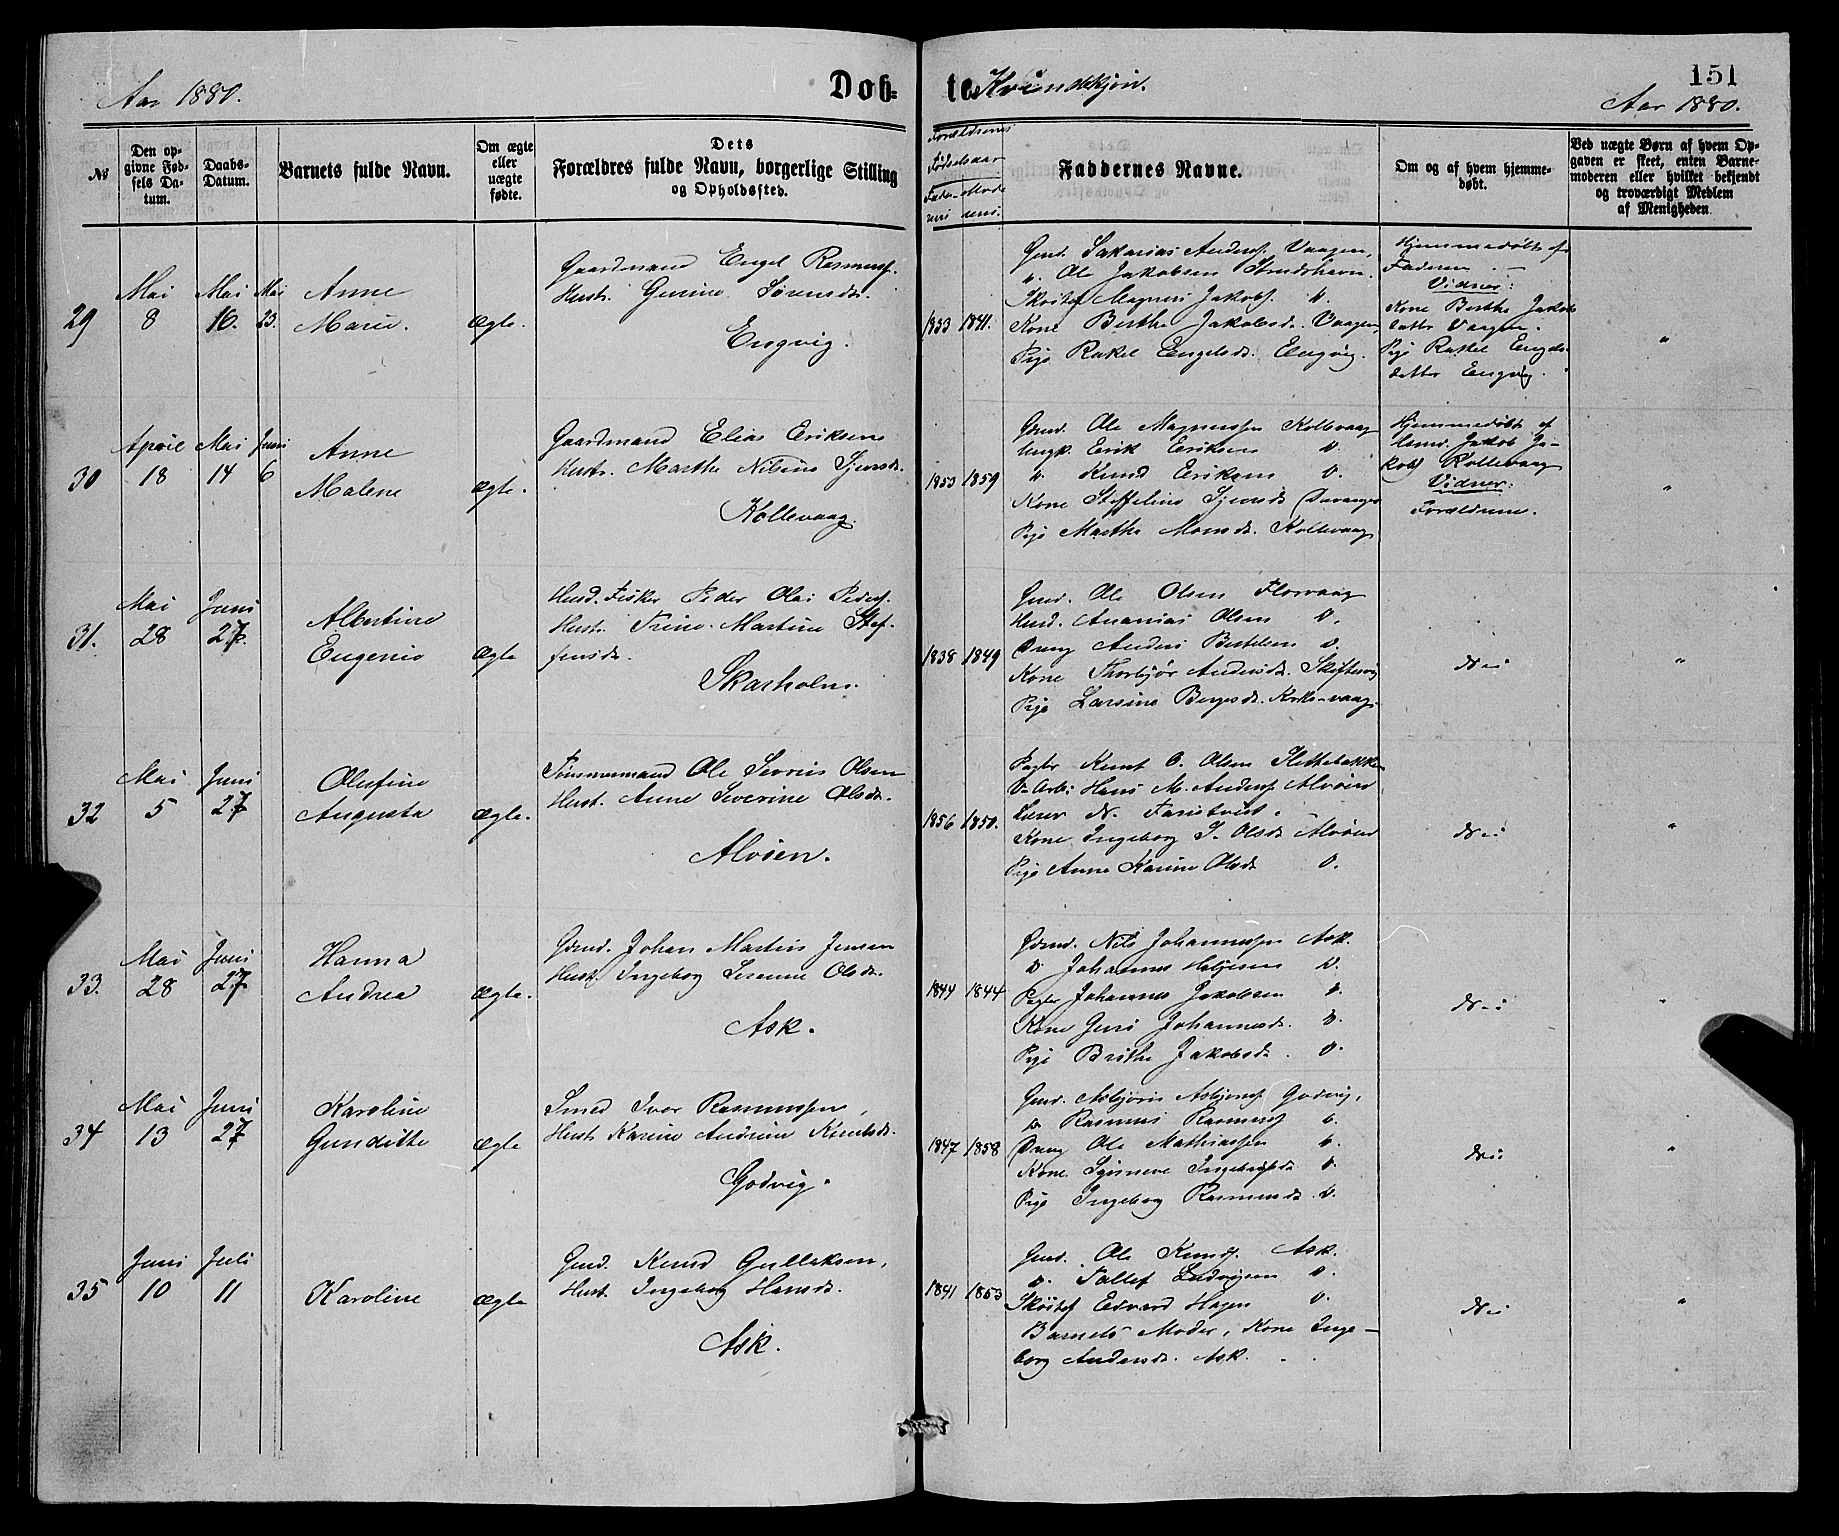 Aar 1880.
Døb-
te Kvindekjøn.
151
Aar 1880.
№
Den op-
givne Fød-
sels Da-
tum.
Daabs-
Datum.
Barnets fulde Navn.
Om ægte
eller
uægte
fødte.
Dets
Forældres fulde Navn, borgerlige Stilling
og Opholdssted.
Forældrenes
Fødselsaar
Fade- Mode
rens rens.
Faddernes Navne.
Om og af hvem hjemme-
døbt.
Ved uægte Børn af hvem Op-
gaven er skeet, enten Barne-
moderen eller hvilket bekjendt
og troværdigt Medlem
af Menigheden
29
Mai
8
Mai
16.
Mai
23.
Anne
Marie.
Ægte.
Gaardmand Engel Rasmuss.
Hustr. Gurine Sørensdr.
Engvig.
1833 1841.
Gmd. Sakarias Anders. Vaagen,
". Ole Jakobsen Strudshavn.
Magnus Jakobs. ".
Kone Berthe Jakobsdr. Vaagen,
Pige Rakel Engelsdr. Engvig.
Hjemmedøbt af
Faderen. -
Vidner:
Kone Berthe Jakobs
datter Vaagen.
Pige Rakel Engels-
datter Engvig.
"
30
April
18
Mai
14
Juni
6
Anne
Malene
Ægte.
Gaardmand Elias Eriksen
Hustr. Marthe Nilsine Sjursdr.
Kollevaag.
1853 1859
Gmd. Ole Magnussen Kollevaag
Ungk. Erik Eriksen D.
". Knud Eriksen D.
Kone Steffeline Sjursdr Davanger
Pige Marthe Monsdr. Kollevaag
Hjemmedøbt af
Gmd. Jakob Ja-
kobs Kollevaag
Vidner:
Forældrene.
"
31.
Mai
28
Juni
27.
Albertine
Eugenie
Ægte
Husd. Fisker Peder Olai Peders.
Hustr. Trine Martine Stef-
fensdr.
Skarholm.
1838 1849
Gmd. Ole Olsen Florvaag
Husd. Ananias Olsen D.
Dreng Anders Bertelsen D.
Kone Thorbjør Andersdr. Skiftesvig
Pige Larsine Børgesdr.
Nei
"
32
Mai
5
Juni
27
Olufine
Augusta
Ægte.
Tømmermand Ole Severin Olsen
Hust. Anne Severine Olsdr.
Alvøen.
1856 1850.
Pagter Knut O. Olsen Slettebakken
Hans M. Anders Alvøen
Lærer N.
Kone Ingeborg S. Olsdr Alvøen
Pige Anne Karine Olsdr D.
Nei
"
33.
Mai
28
Juni
27
Hanna
Andrea
Ægte.
Gmd. Johan Martin Jensen
Hust. Ingeborg Susanne Olsdr.
Ask.
1844 1844
Gmd. Nils Johannessen Ask.
D Johannes Helgesen D.
Pagter Johannes Jakobsen D.
Kone Guri Johannesdr. D.
Pige Brithe Jakobsdr. D.
Nei
"
34
Mai
13
Juni
27
Karoline
Gunditte
Ægte
Smed Ivar Rasmussen,
Hust. Karine Andrine Knutsdr.
Godvig.
1847 1858
Gmd. Asbjørn Asbjørns Godvig,
D Rasmus Rasmuss D.
Dreng Ole Mathiassen D.
Kone Synneve Ingebrigtsdr D.
Pige Ingeborg Rasmusdr. D.
Nei
"
35
Juni
10
Juli
11
Karoline
Ægte
Gmd. Knud Gullaksen,
Hust. Ingeborg Hansdr.
Ask.
1841 1853
Gmd. Ole Knuds. Ask.
D. Tollef Ludvigsen D.
Edvard Hagen D.
Barnets Moder, Kone Inge-
borg Andersdr. Ask.
Nei
"